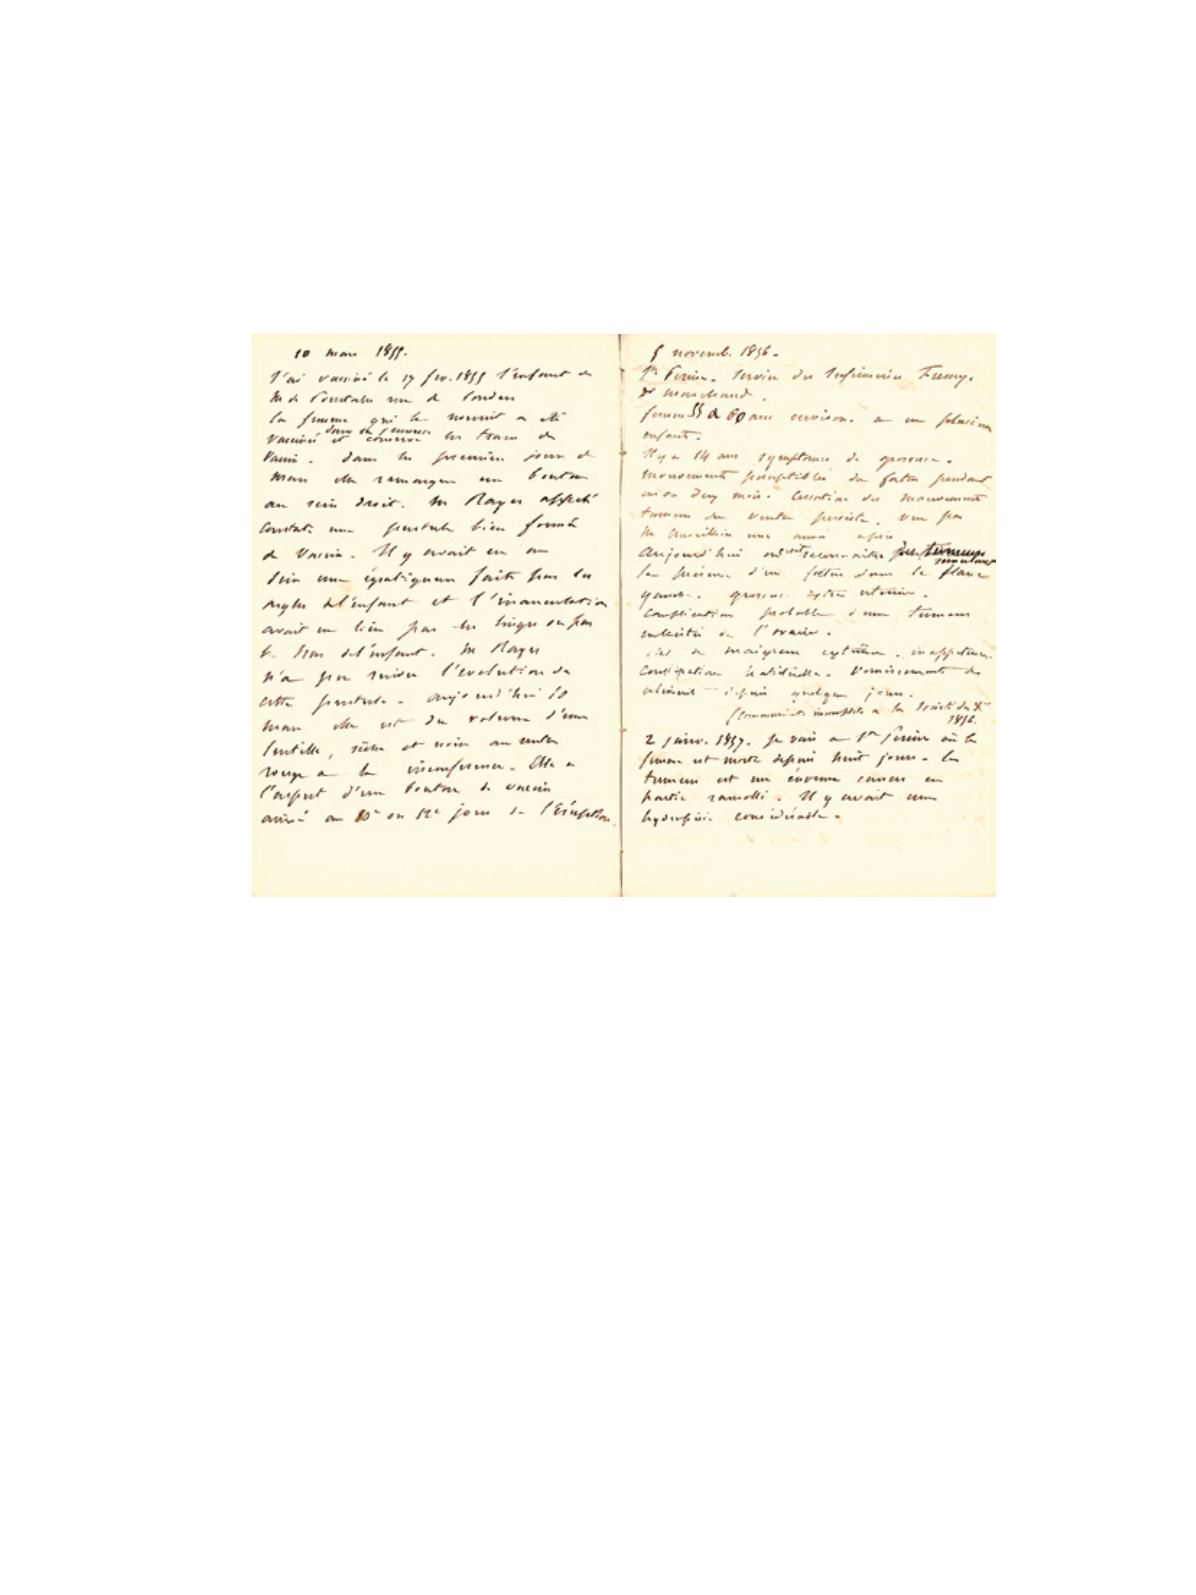 10 mars 1855.
J'ai vacciné le 17 fev. 1855 l'enfant de
Mr de rue de Londres
la femme qui le nourrit a été
dans sa jeunesse
vaccinée et conserve les traces du
vaccin. dans les premiers jours de
mars elle remarque un bouton
au sein droit. Mr Rayer appelé
constate une pustule bien formée
de vaccin. Il y avait eu au
sein une égratignure faite par les
ongles de l'enfant et l'inoculation
avait eu lieu par les linges ou par
le bras de l'enfant. Mr Rayer
n'a pas suivi l'evolution de
cette pustule. aujourd'hui 10
mars elle est du volume d'une
lentille, sèche et noire au centre
rouge a la circonference. Elle a
l'aspect d'un bouton de vaccin
arrivé au 10e ou 12e jour de l'Eruption.
5 novemb. 1856.
Ste Perine. service des Infirmeries Fremy.
& marchand.
femme 55 a 60 ans environ. a eu plusieurs
enfants.
Il y a 14 ans symptomes de grossesse.
mouvements perceptibles du foetus pendant
un ou deux mois. Cessation des mouvements
tumeur du ventre persiste. vue par
Mr une année après
Aujourd'hui on reconnaitre
la présence d'un foetus dans le flanc
gauche. grossesse extra uterine.
Complication probable d'une tumeur
enkistée de l'ovaire.
de maigreur extrême. inappetence
Constipation habituelle. Vomissements des
aliments depuis quelques jours.
(Communiqué a la Société de
1856.
2 janv. 1857. Je vais a Ste Perine où la
femme est morte depuis huit jours. la
tumeur est un énorme cancer en
partie ramolli. Il y avait une
hydropisie considérable.